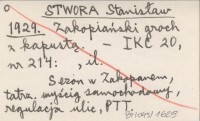 o STWORA Stanisław
1929. Zakopiański groch
z kapustą. – IKC 20,
nr 214: , il.
Sezon w Zakopanem,
tatrz. wyścig samochodowy,
regulacja ulic, PTT.